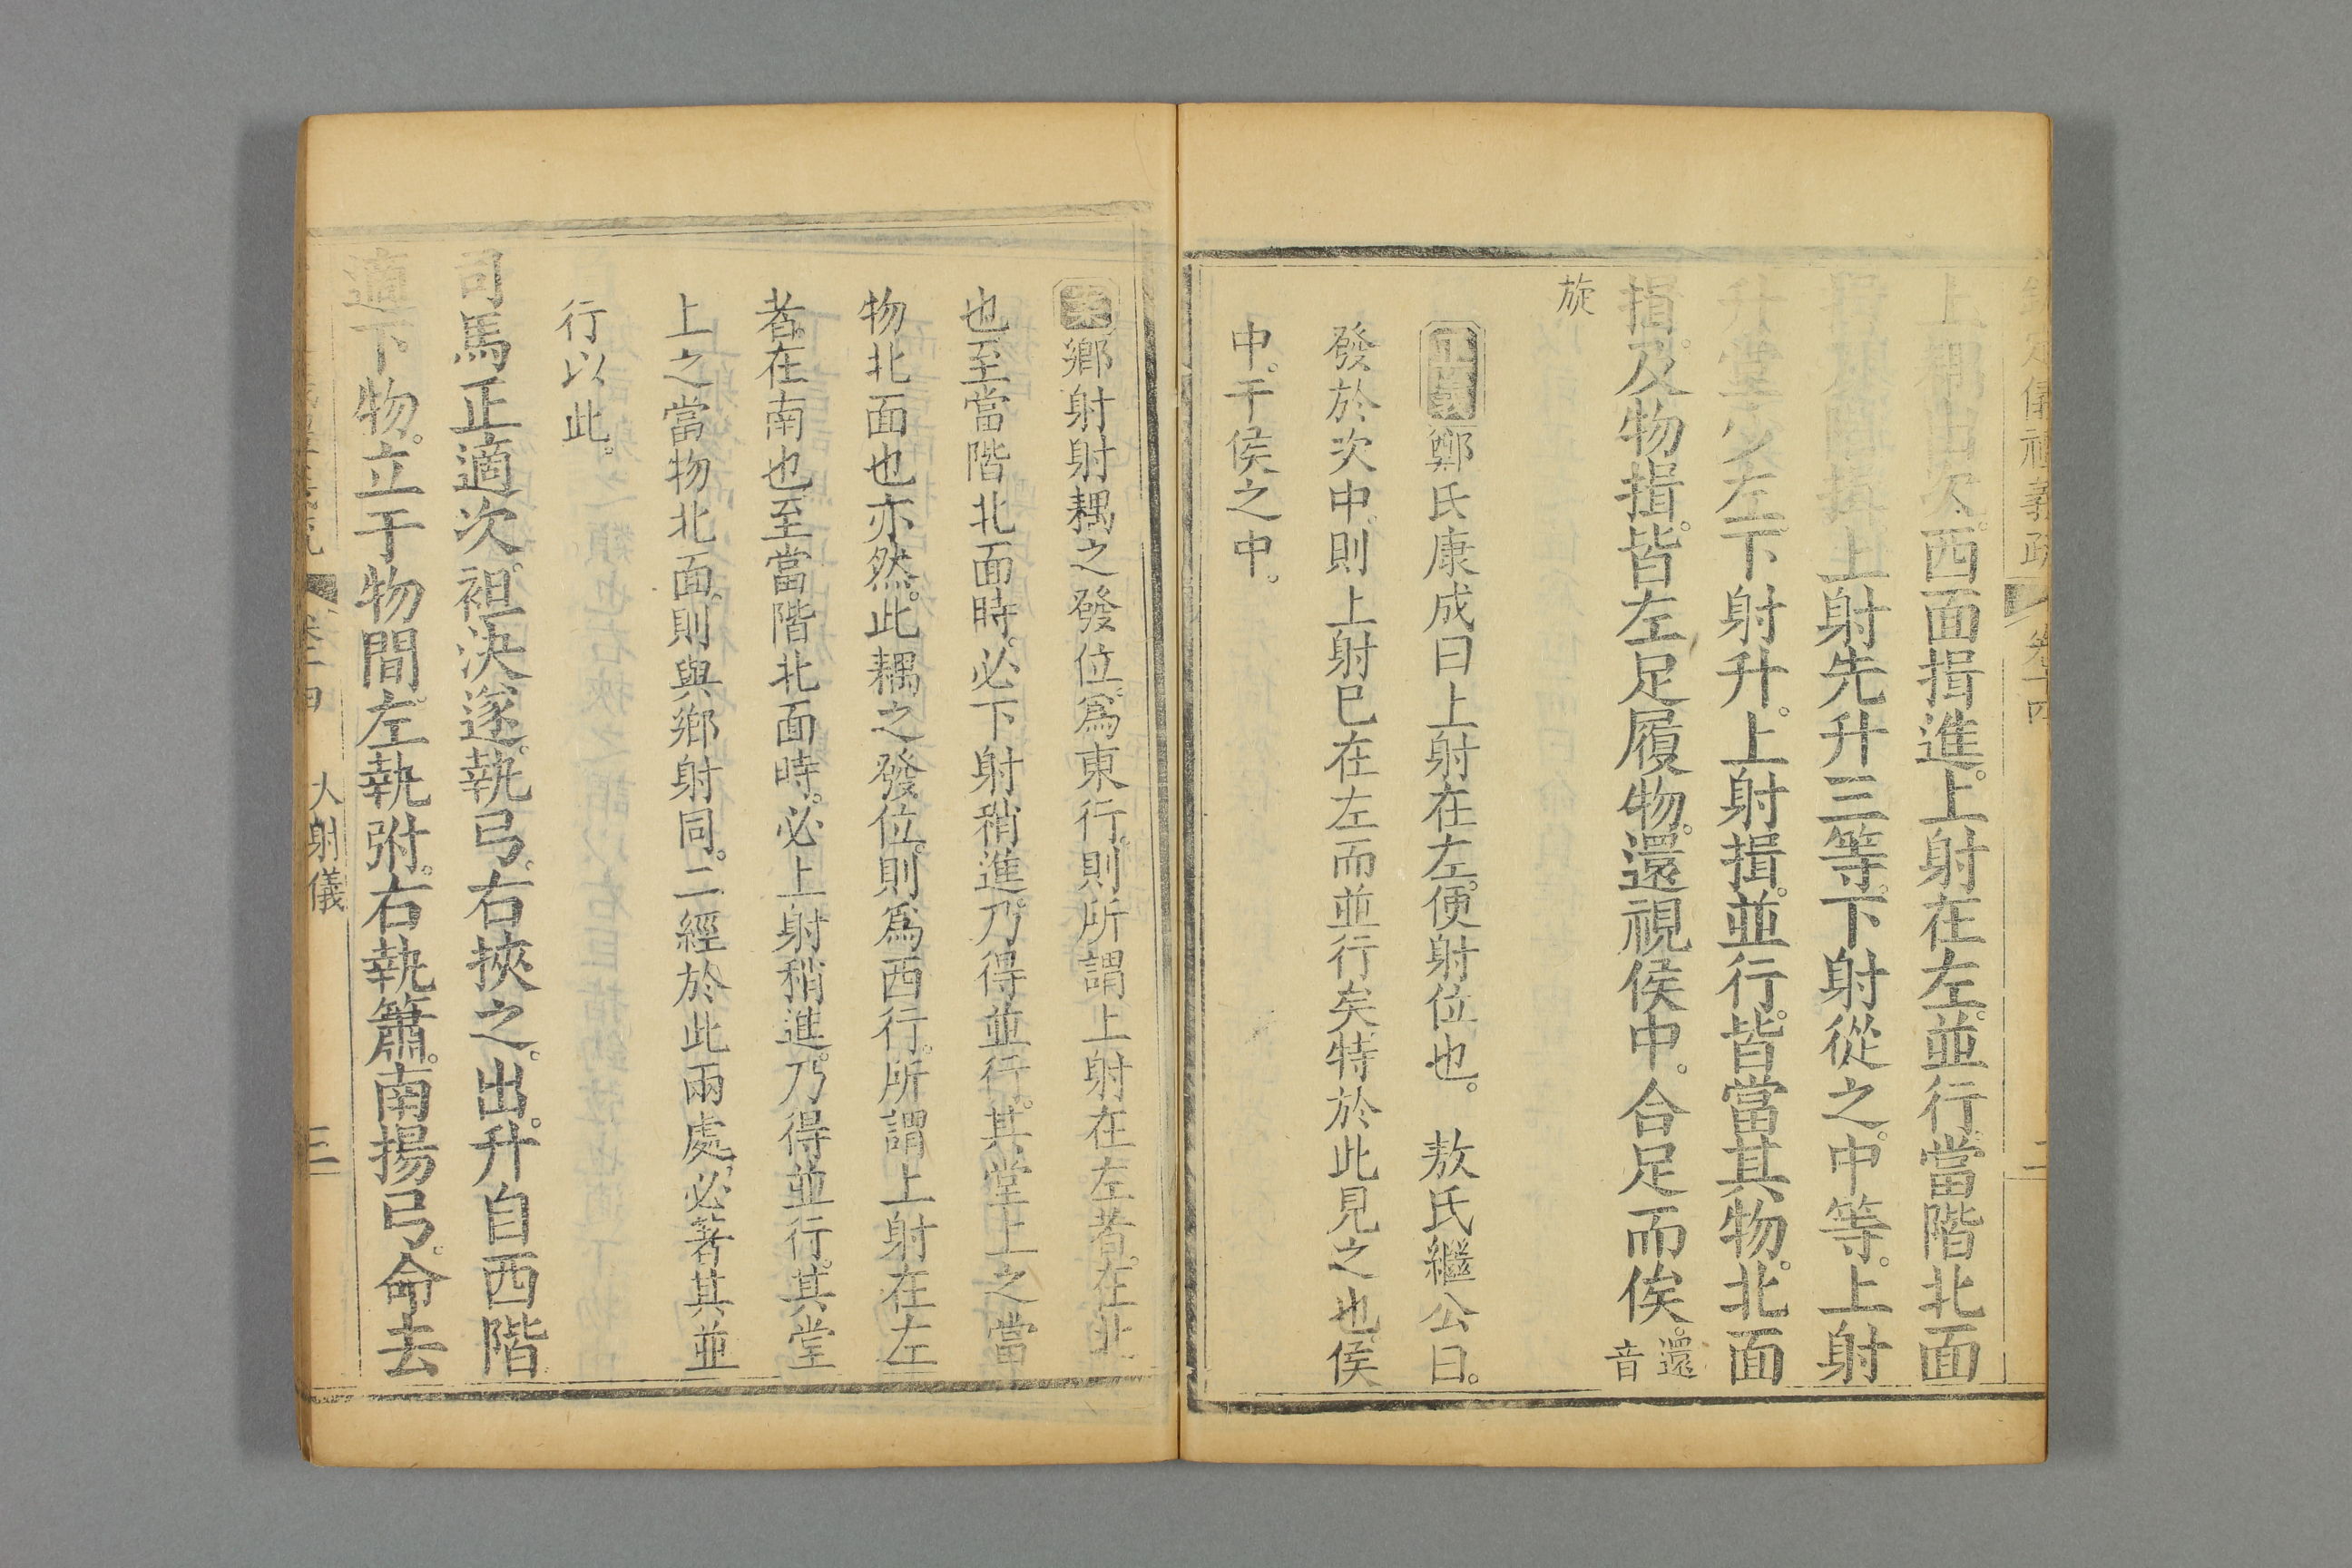 定儀禮義疏 卷十四 二
上耦出次西面揖進上射在左並行當階北面
揖及階揖上射先升三等下射從之中等上射
升堂少左下射升上射揖並行皆當其物北面
揖及物揖皆左足履物還視侯中合足而俟還音
旋
正義鄭氏康成曰上射在左便射位也 敖氏繼公曰
發於次中則上射已在左而並行矣特於此見之也侯
中干侯之中
案鄉射射耦之發位爲東行則所謂上射在左者在北
也至當階北面時必下射稍進乃得並行其堂上之當
物北面也亦然此耦之發位則爲西行所謂上射在左
者在南也至當階北面時必上射稍進乃得並行其堂
上之當物北面則與鄉射同二經於此兩處必著其並
行以此
司馬正適次袒決遂執弓右挾之出升自西階
適下物立于物間左執弣右執簫南揚弓命去
卷十四 大射儀 三